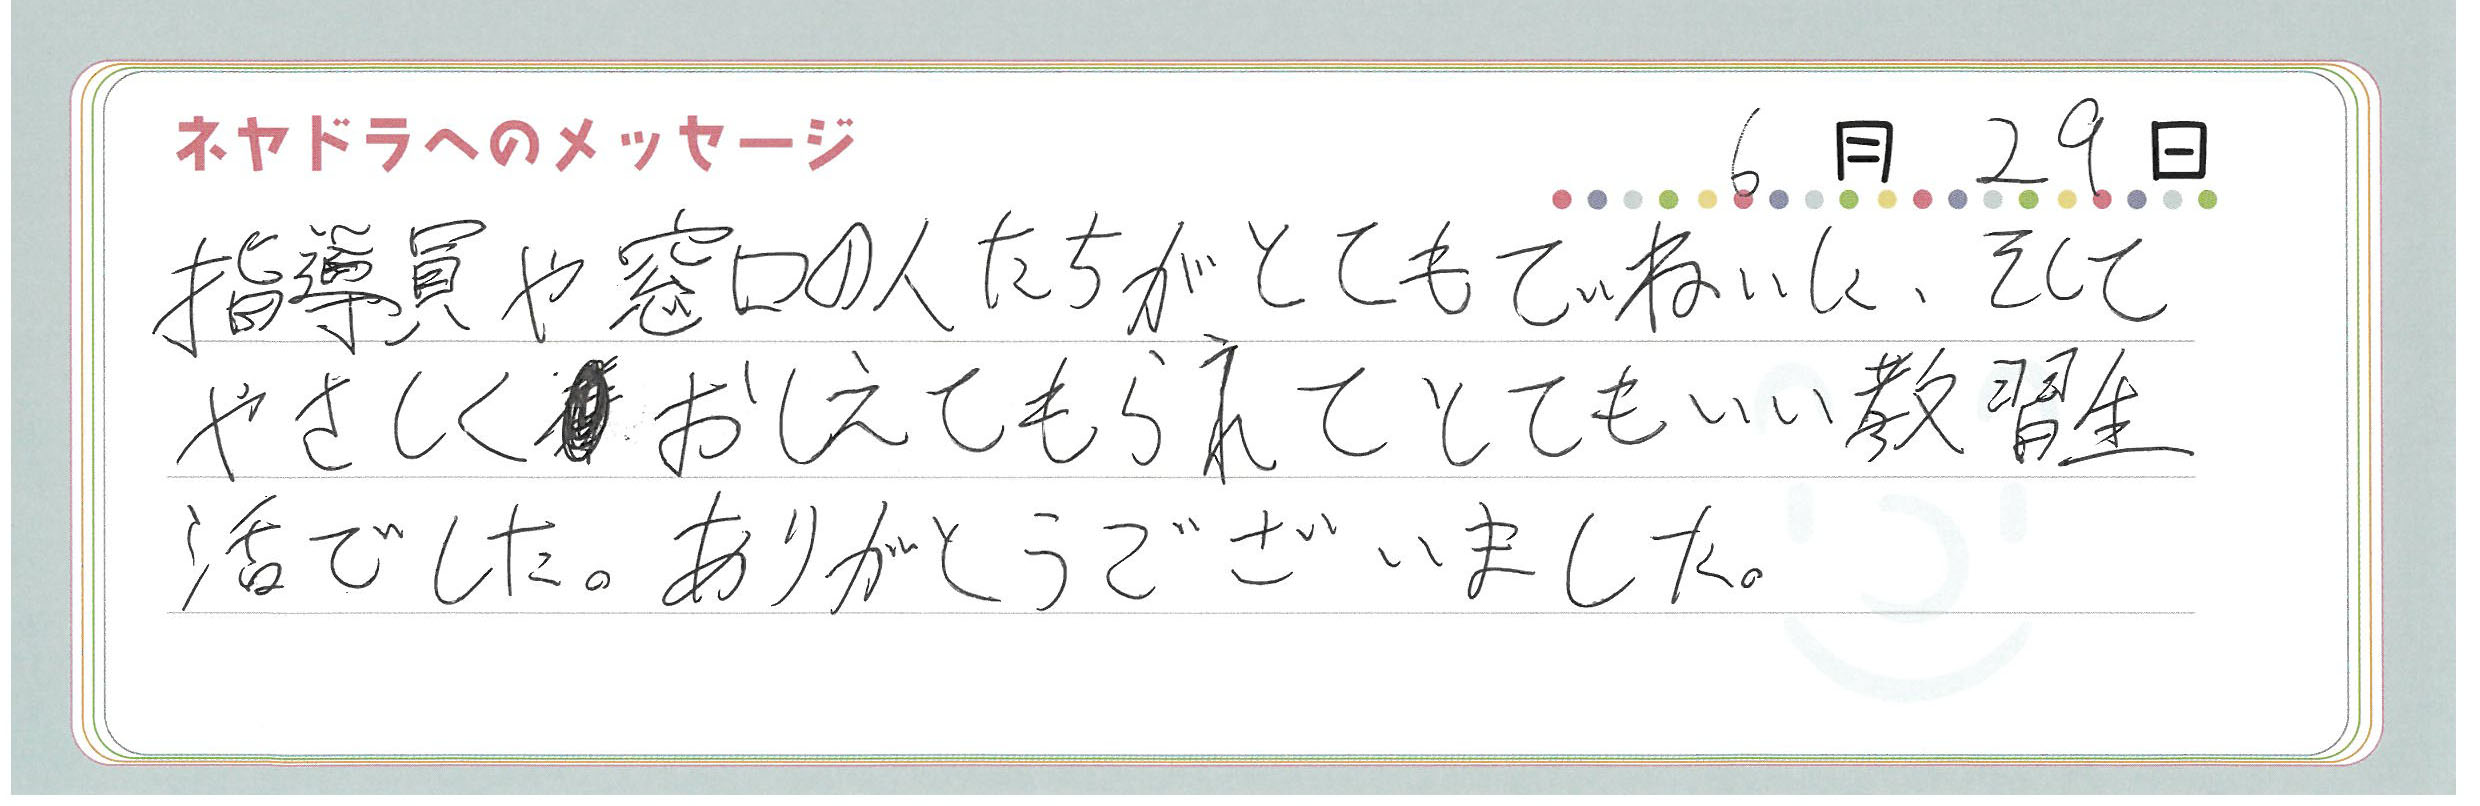 ネヤドラへのメッセージ
6月29日
指導員や窓口の人たちがとてもていねいに、そして
やさしくおしえてもられてとてもいい教習生
活でした。ありがとうございました。